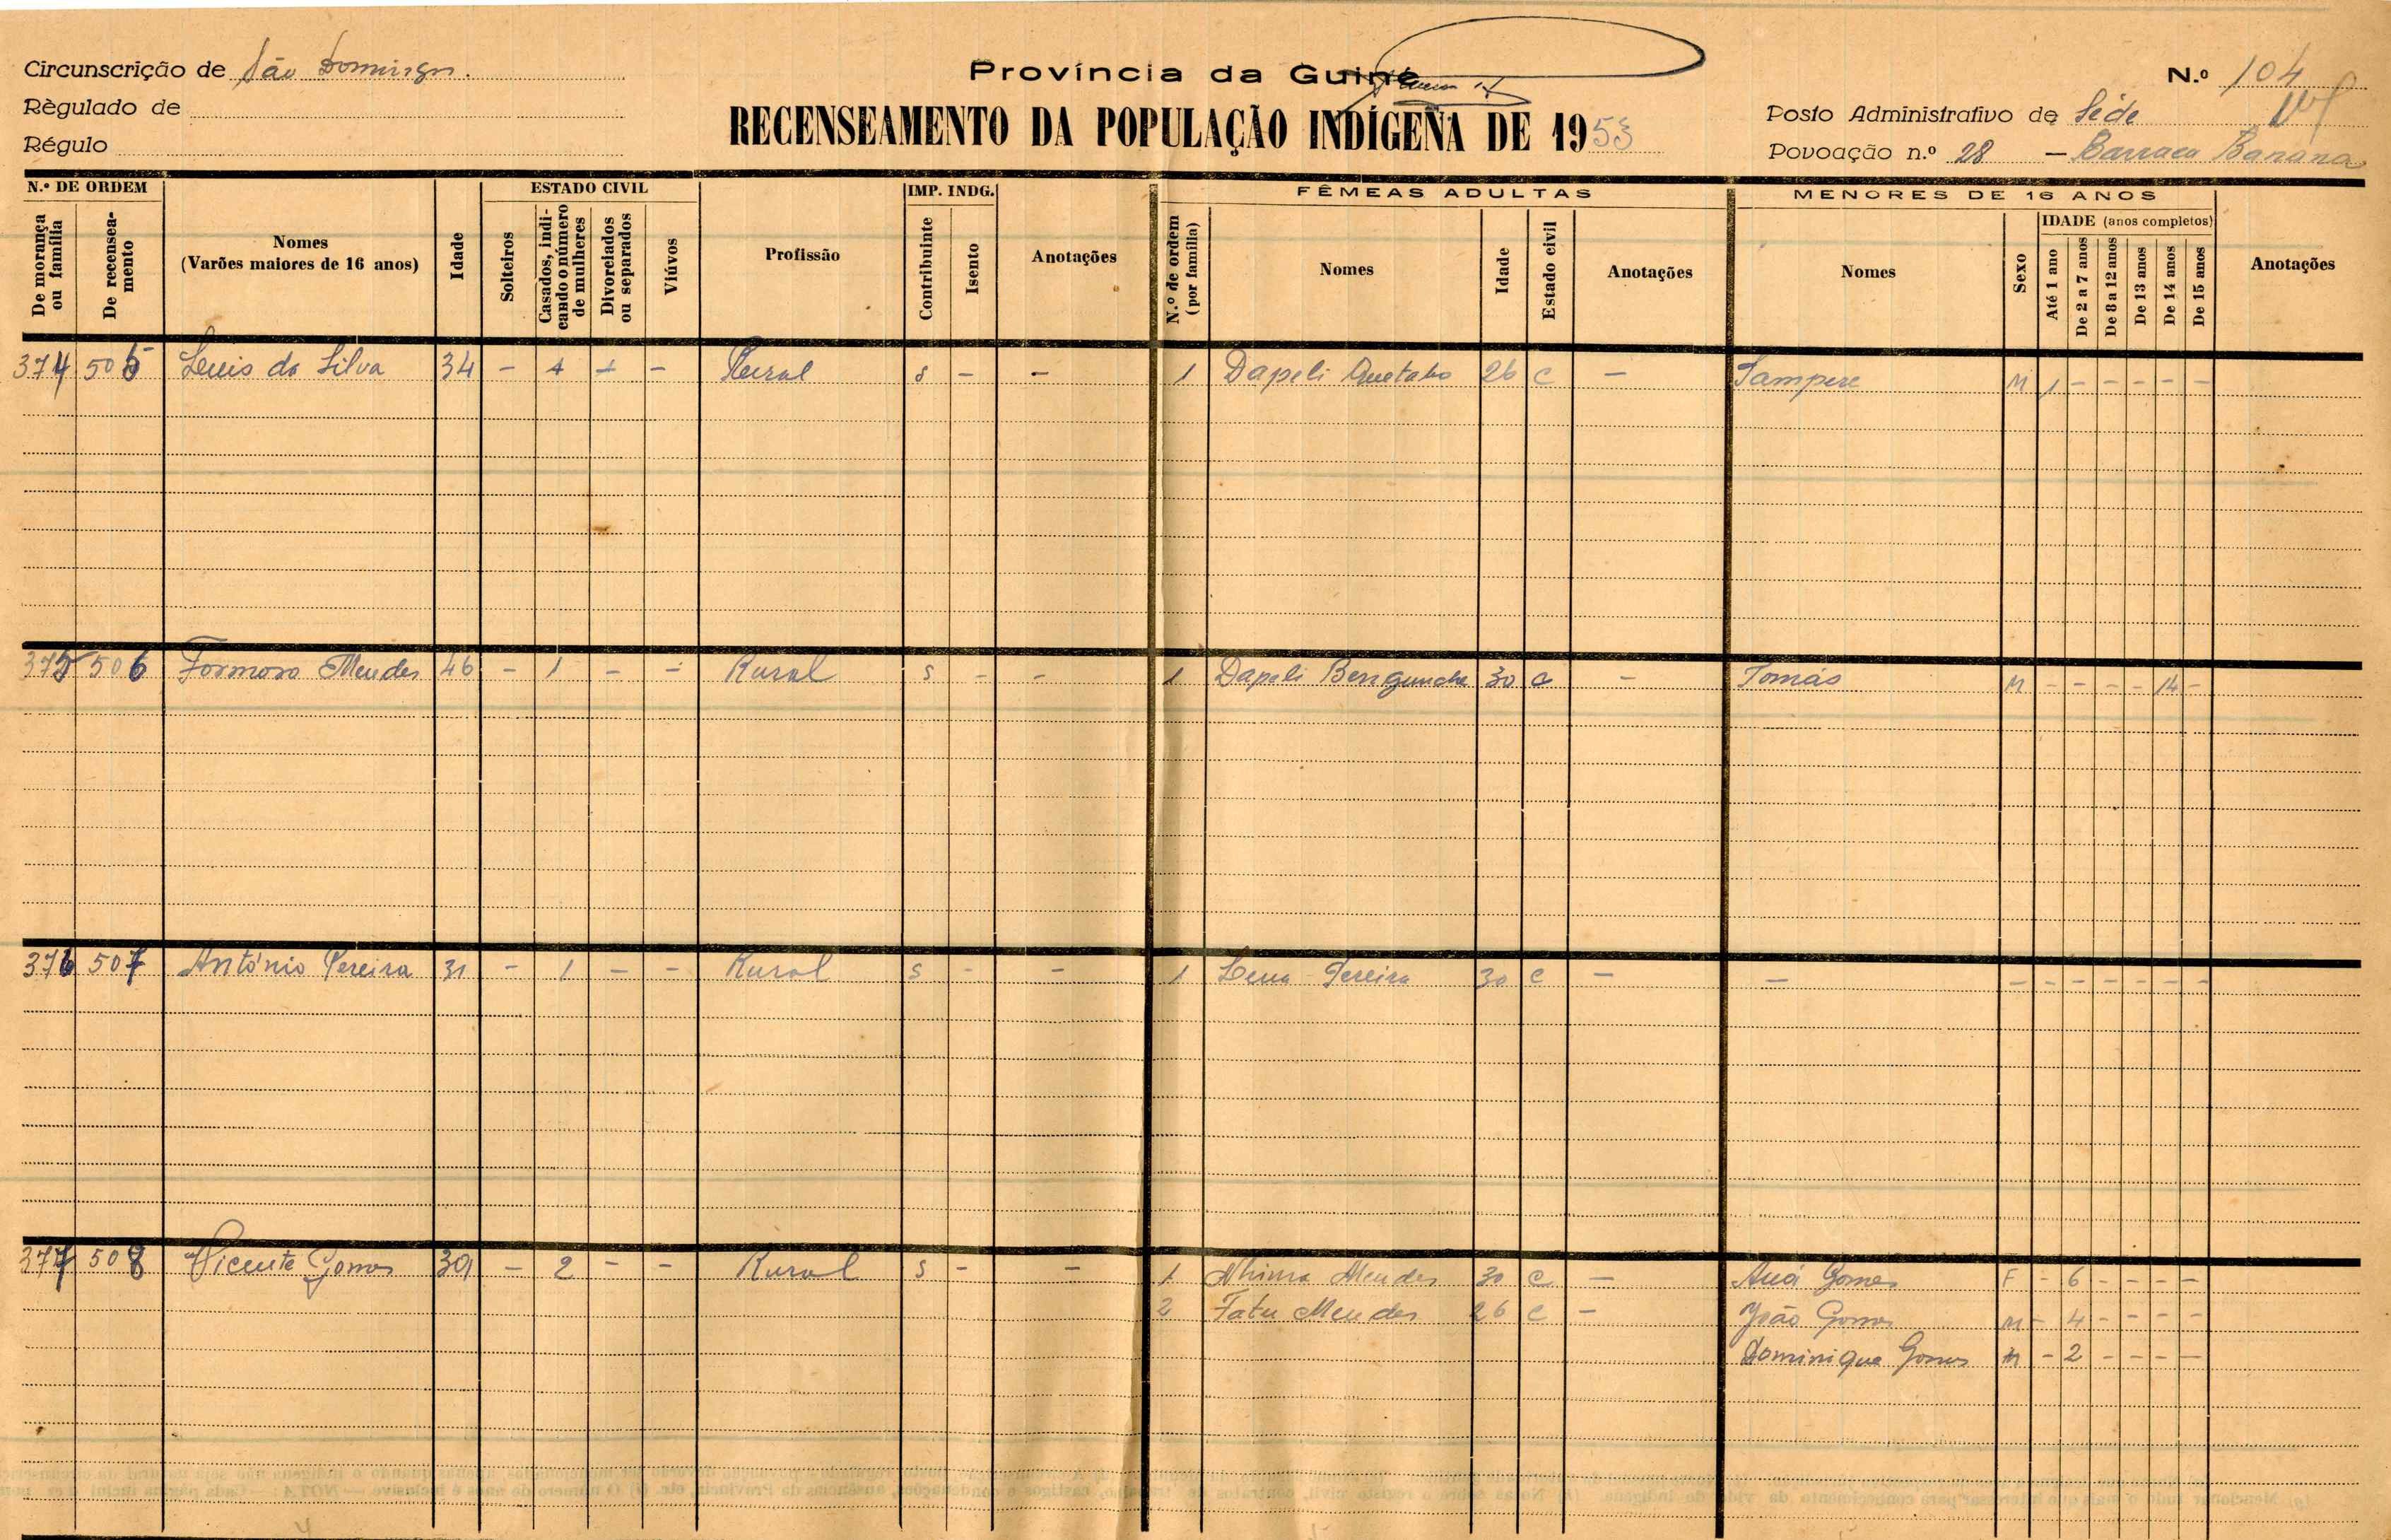 Circunscrição de São Domingos.
Règulado de
Régulo
Província da Guiné
RECENSEAMENTO DA POPULAÇÃO INDÍGENA DE 1953
N.º 104
Posto Administrativo de Séde
Povoação n.º 28 — Barraca Banana
N.º DE ORDEM
De morança ou família
De recenseamento
Nomes
(Varões maiores de 16 anos)
Idade
ESTADO CIVIL
Solteiros
Casados, indicando o número de mulheres
Divorciados ou separados
Viúvos
Profissão
IMP. INDG.
Contribuinte
Isento
Anotações
FÊMEAS ADULTAS
N.º de ordem (por família)
Nomes
Idade
Estado civil
Anotações
MENORES DE 16 ANOS
Nomes
Sexo
IDADE (anos completos)
Até 1 ano
De 2 a 7 anos
De 8 a 12 anos
De 13 anos
De 14 anos
De 15 anos
Anotações
374 505 Luis da Silva 34 - 1 - - Rural s - - 1 Dapeli 26 C - Sampere M 1 - - - - -
375 506 Formoso Mendes 46 - 1 - - Rural s - - 1 Dapeli 30 C - Tomás M - - - - 14 -
376 507 António Pereira 31 - 1 - - Rural s - - 1 Lena Pereira 30 C - - - - - - - - -
377 508 Vicente Gomes 39 - 2 - - Rural s - - 1 Mendes 30 C - Gomes F - 6 - - - -
2 Fatu Mendes 26 C - João Gomes M - 4 - - - -
Dominique Gomes M - 2 - - - -